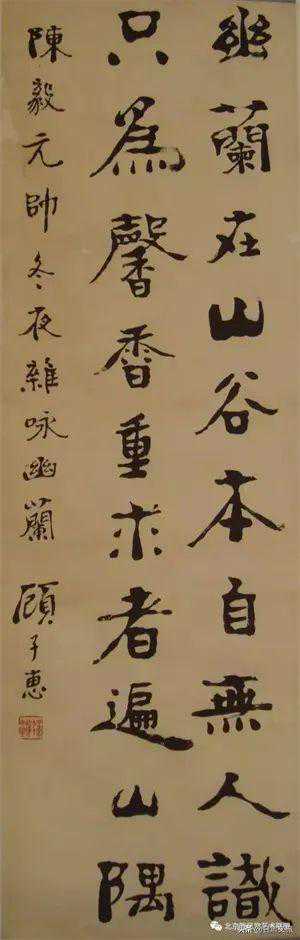 幽蘭在山谷本自無人識
只為馨香重求者遍山隅
陳毅元帥冬夜雜咏幽蘭 顧子惠